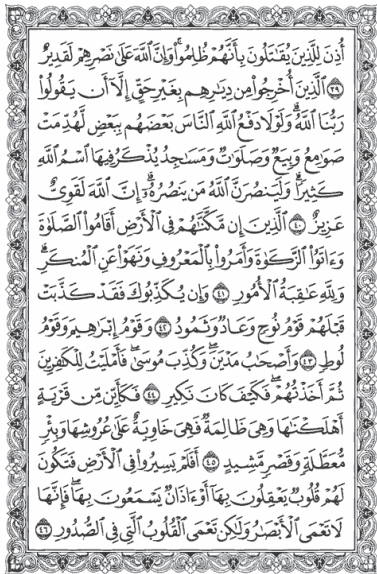 أُذِنَ لِلَّذِينَ يُقَٰتَلُونَ بِأَنَّهُمْ ظُلِمُوا۟ ۚ وَإِنَّ ٱللَّهَ عَلَىٰ نَصْرِهِمْ لَقَدِيرٌ
﴿٣٩﴾ ٱلَّذِينَ أُخْرِجُوا۟ مِن دِيَٰرِهِم بِغَيْرِ حَقٍّ إِلَّآ أَن يَقُولُوا۟
رَبُّنَا ٱللَّهُ ۗ وَلَوْلَا دَفْعُ ٱللَّهِ ٱلنَّاسَ بَعْضَهُم بِبَعْضٍ لَّهُدِّمَتْ
صَوَٰمِعُ وَبِيَعٌ وَصَلَوَٰتٌ وَمَسَٰجِدُ يُذْكَرُ فِيهَا ٱسْمُ ٱللَّهِ
كَثِيرًا ۗ وَلَيَنصُرَنَّ ٱللَّهُ مَن يَنصُرُهُۥٓ ۗ إِنَّ ٱللَّهَ لَقَوِىٌّ
عَزِيزٌ ﴿٤٠﴾ ٱلَّذِينَ إِن مَّكَّنَّٰهُمْ فِى ٱلْأَرْضِ أَقَامُوا۟ ٱلصَّلَوٰةَ
وَءَاتَوُا۟ ٱلزَّكَوٰةَ وَأَمَرُوا۟ بِٱلْمَعْرُوفِ وَنَهَوْا۟ عَنِ ٱلْمُنكَرِ ۗ
وَلِلَّهِ عَٰقِبَةُ ٱلْأُمُورِ ﴿٤١﴾ وَإِن يُكَذِّبُوكَ فَقَدْ كَذَّبَتْ
قَبْلَهُمْ قَوْمُ نُوحٍ وَعَادٌ وَثَمُودُ ﴿٤٢﴾ وَقَوْمُ إِبْرَٰهِيمَ وَقَوْمُ
لُوطٍ ﴿٤٣﴾ وَأَصْحَٰبُ مَدْيَنَ ۖ وَكُذِّبَ مُوسَىٰ فَأَمْلَيْتُ لِلْكَٰفِرِينَ
ثُمَّ أَخَذْتُهُمْ ۖ فَكَيْفَ كَانَ نَكِيرِ ﴿٤٤﴾ فَكَأَيِّن مِّن قَرْيَةٍ
أَهْلَكْنَٰهَا وَهِىَ ظَالِمَةٌ فَهِىَ خَاوِيَةٌ عَلَىٰ عُرُوشِهَا وَبِئْرٍ
مُّعَطَّلَةٍ وَقَصْرٍ مَّشِيدٍ ﴿٤٥﴾ أَفَلَمْ يَسِيرُوا۟ فِى ٱلْأَرْضِ فَتَكُونَ
لَهُمْ قُلُوبٌ يَعْقِلُونَ بِهَآ أَوْ ءَاذَانٌ يَسْمَعُونَ بِهَا ۖ فَإِنَّهَا
لَا تَعْمَى ٱلْأَبْصَٰرُ وَلَٰكِن تَعْمَى ٱلْقُلُوبُ ٱلَّتِى فِى ٱلصُّدُورِ ﴿٤٦﴾